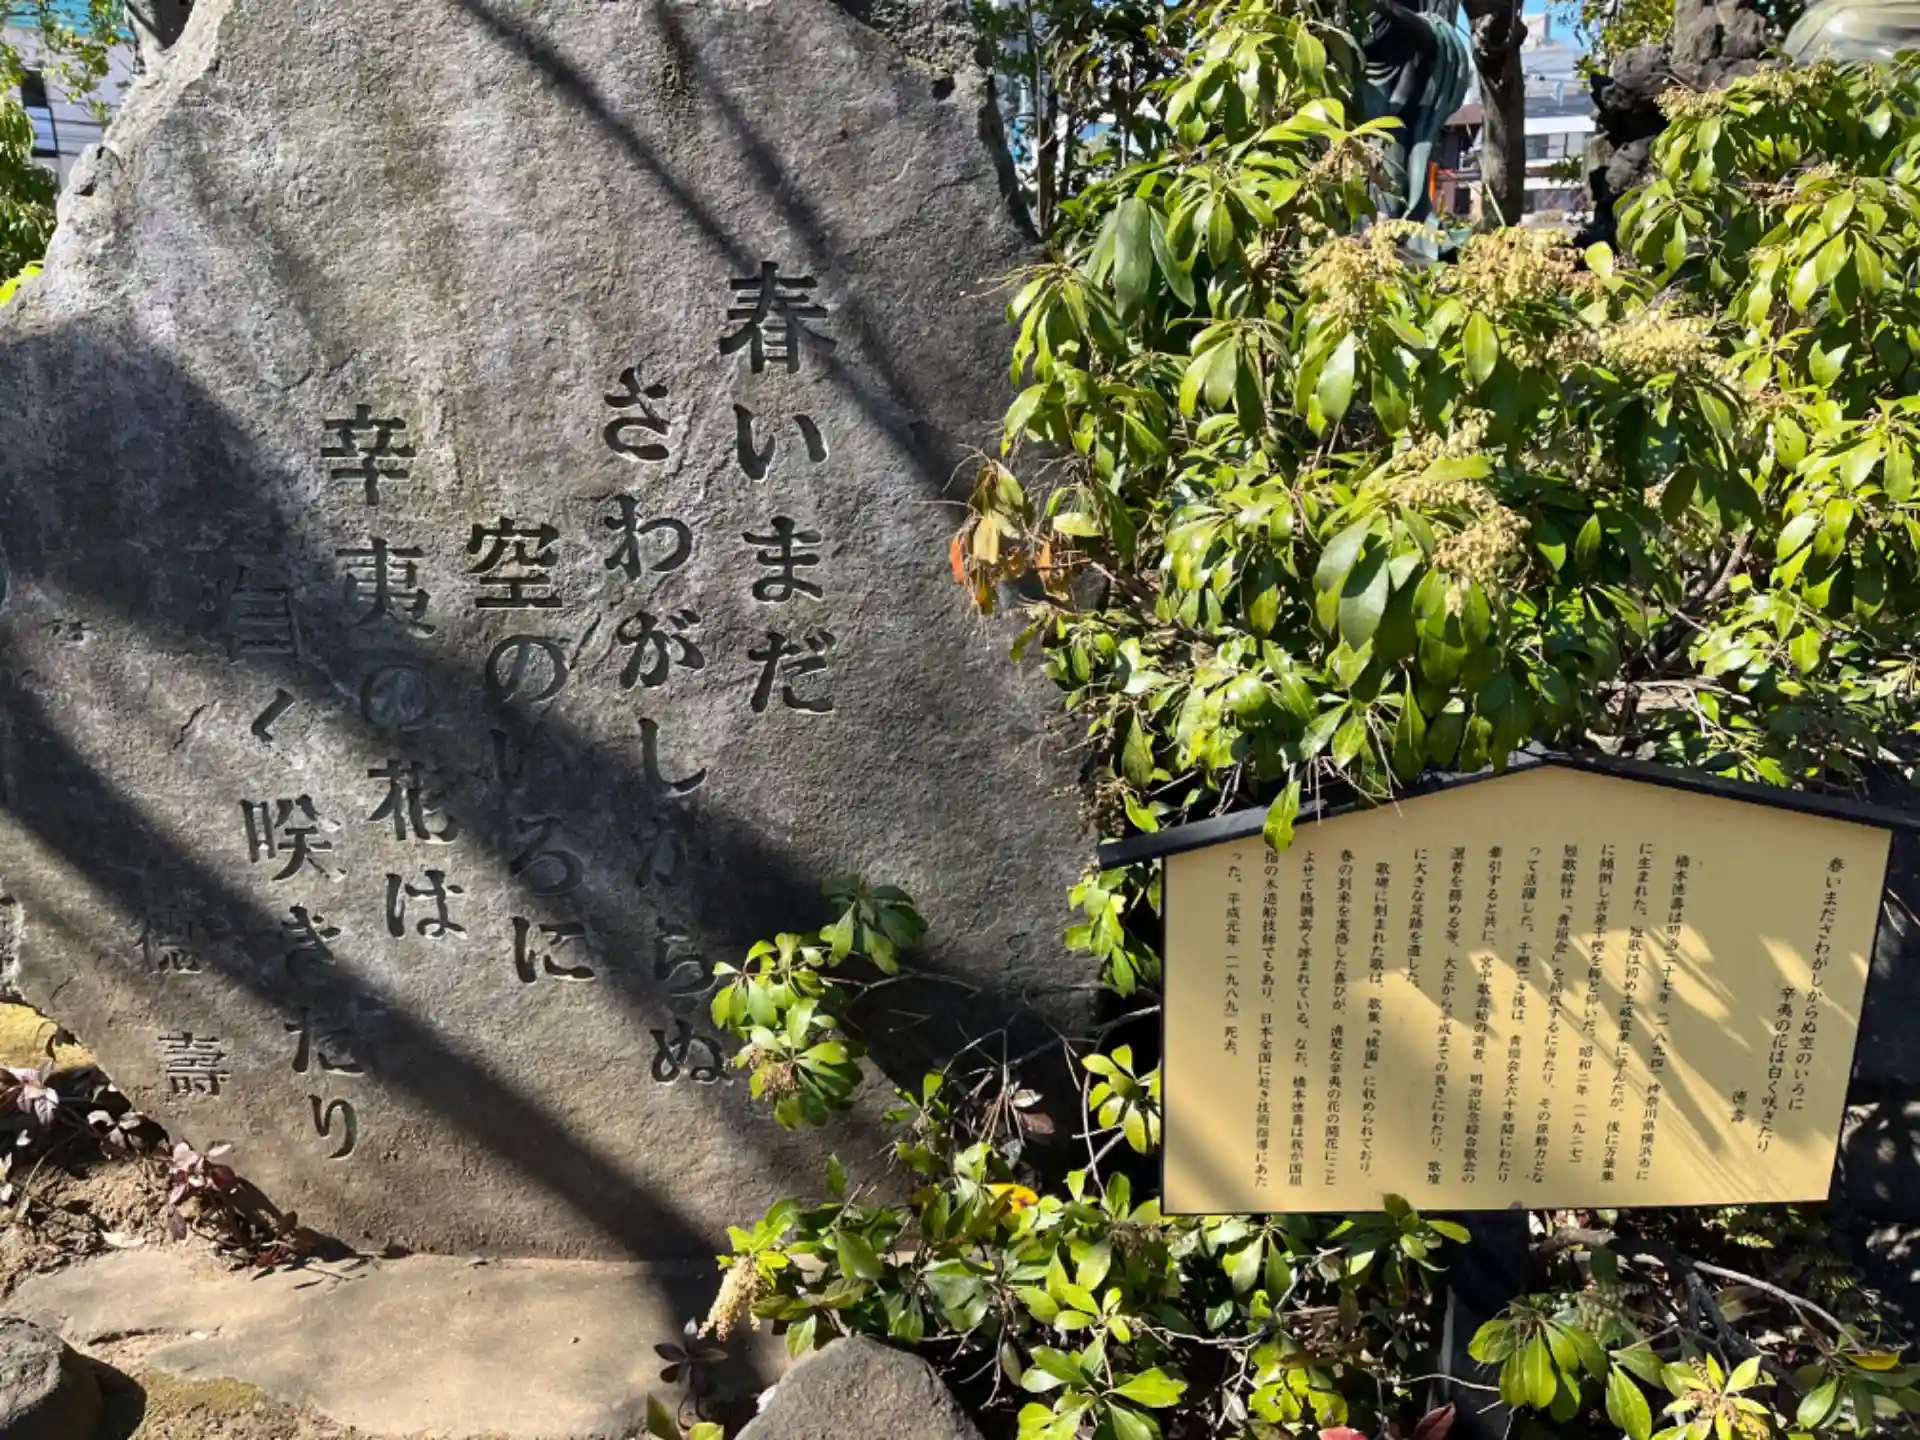 春いまだ
さわがしからぬ
空のいろに
辛夷の花は
白く咲きたり
徳壽
春いまださわがしからぬ空のいろに
辛夷の花は白く咲きたり
徳壽
橋本徳壽は明治二十七年(一八九四)神奈川県横浜市に
に生まれた。短歌は初め土岐哀果に学んだが、後に万葉集
に傾倒し古泉千樫を師と仰いだ。昭和二年(一九二七)
短歌結社『青垣会』を結成するに当たり、その原動力とな
って活躍した。千樫亡き後は、青垣会を六十年間にわたり
牽引すると共に、宮中歌会始の選者、明治記念綜合歌会の
選者を務める等、大正から平成までの長きにわたり、歌壇
に大きな足跡を遺した。
歌碑に刻まれた歌は、歌集『桃園』に収められており、
春の到来を実感した喜びが、清楚な辛夷の花の開花にこと
よせて格調高く詠まれている。なお、橋本徳壽は我が国屈
指の木造船技師でもあり、日本全国に赴き技術指導にあた
った。平成元年(一九八九)死去。